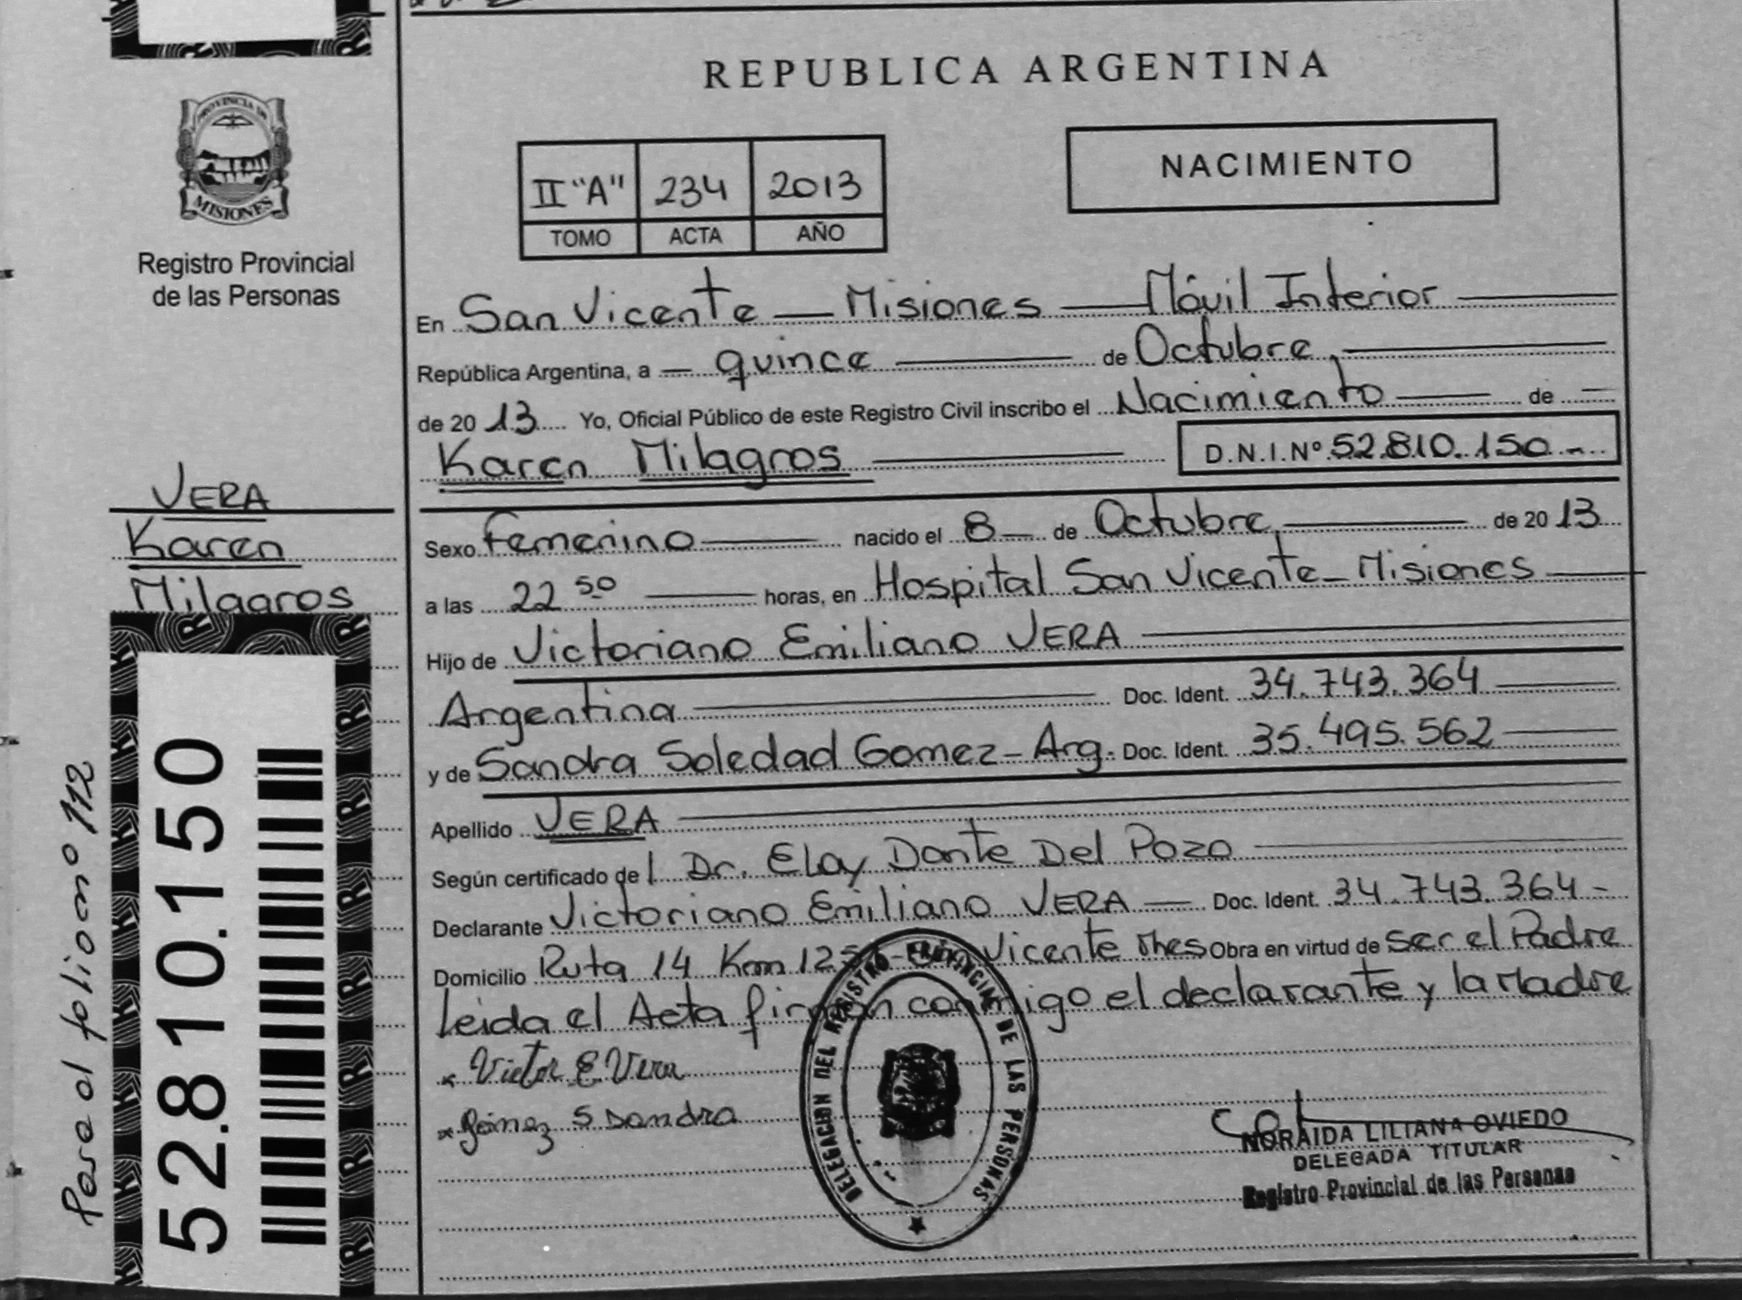 REPUBLICA ARGENTINA
PROVINCIA DE
MISIONES
Registro Provincial
de las Personas
II "A" 234 2013
TOMO ACTA AÑO
NACIMIENTO
En San Vicente — Misiones — Móvil Interior
República Argentina, a — quince — de Octubre,
de 2013 Yo, Oficial Público de este Registro Civil inscribo el Nacimiento — de —
Karen Milagros — D.N.I.Nº 52.810.150.-
VERA
Karen
Milagros
Sexo Femenino — nacido el 8 — de Octubre, — de 2013
a las 22 50 — horas, en Hospital San Vicente - Misiones —
Hijo de Victoriano Emiliano VERA —
Argentina — Doc. Ident. 34.743.364 —
y de Sandra Soledad Gomez - Arg. Doc. Ident. 35.495.562 —
Apellido VERA —
Según certificado de l Dr. Eloy Dante Del Pozo —
Declarante Victoriano Emiliano VERA — Doc. Ident. 34.743.364 -
Domicilio Ruta 14 Km Vicente Mnes Obra en virtud de ser el Padre
Leida el Acta firman conmigo el declarante y la Madre
x Victor E. Vera
x Gómez S Sandra
DELEGACION DEL REGISTRO PROVINCIAL DE LAS PERSONAS
NORAIDA LILIANA OVIEDO
DELEGADA TITULAR
Registro Provincial de las Personas
52.810.150
Pasa al folio nº 112